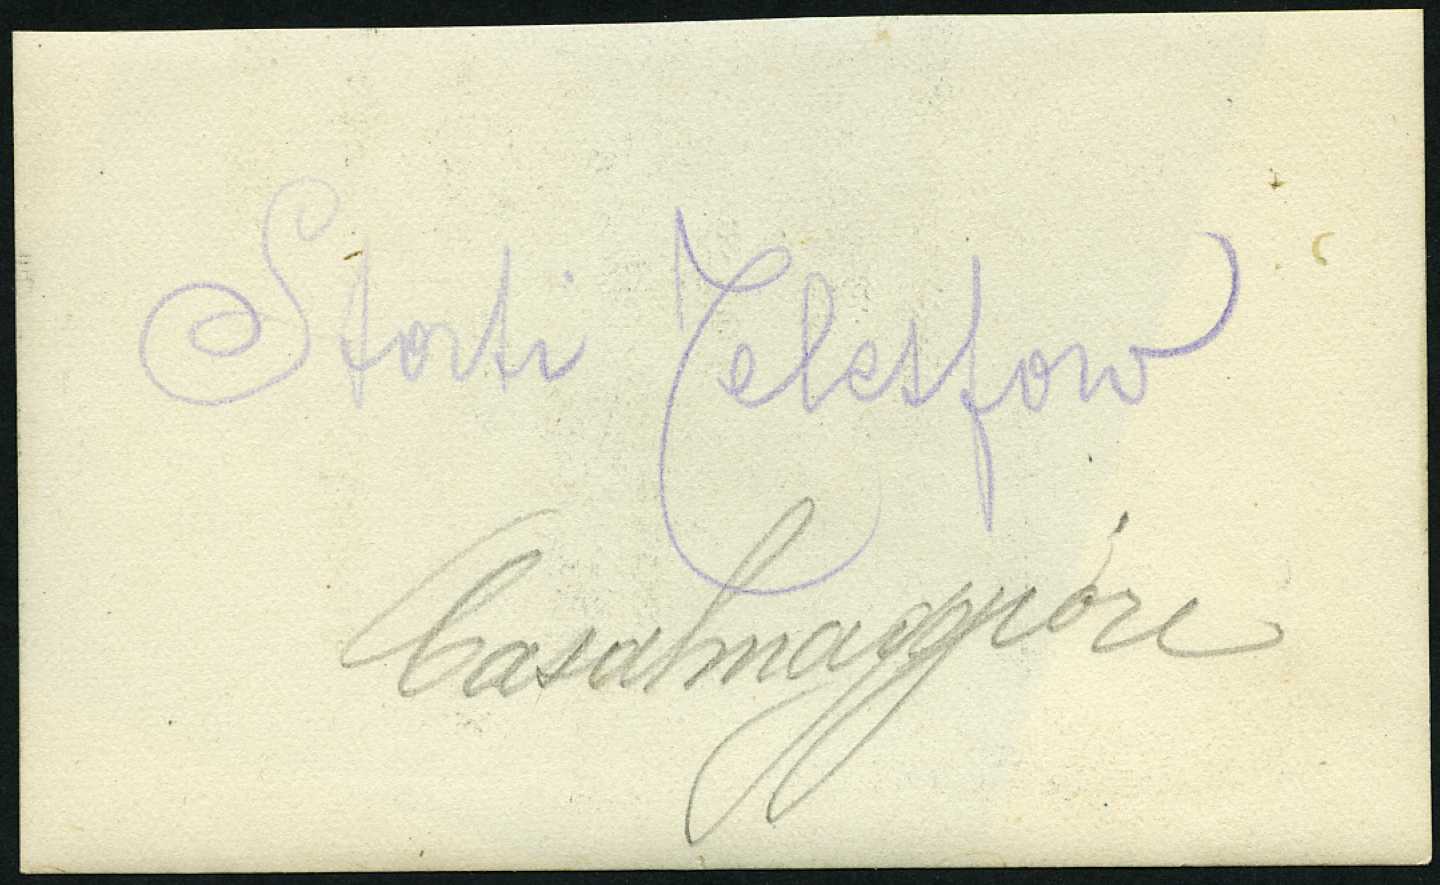 Storti Telesforo
Casalmaggiore